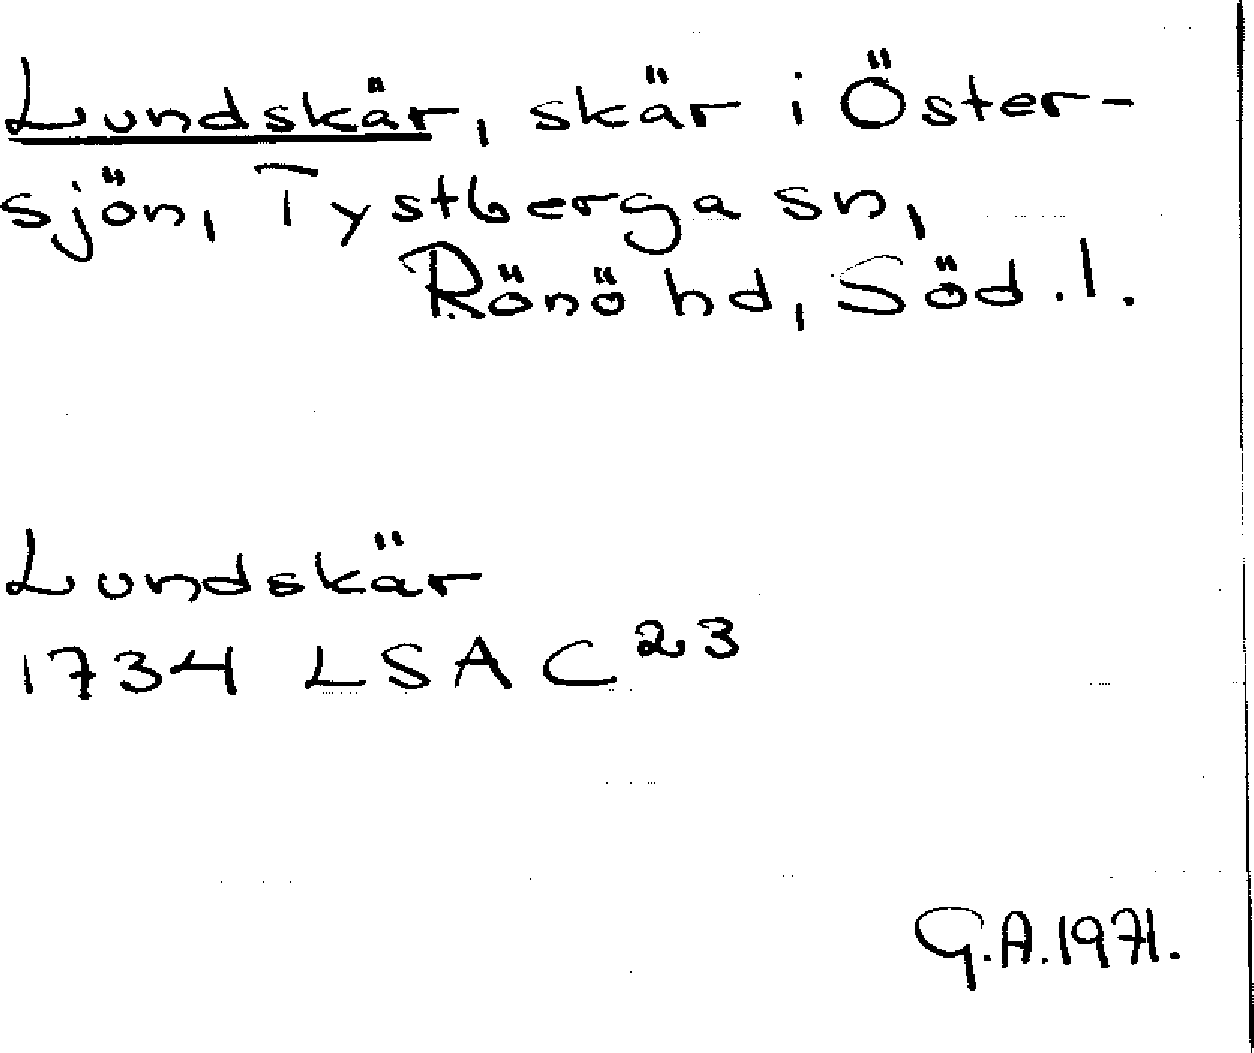 Lundskär, skär i Öster-
sjön, Tystberga sn,
Rönö hd, Söd.l.
Lundskär
1734 LSA C²³
G.A.1971.